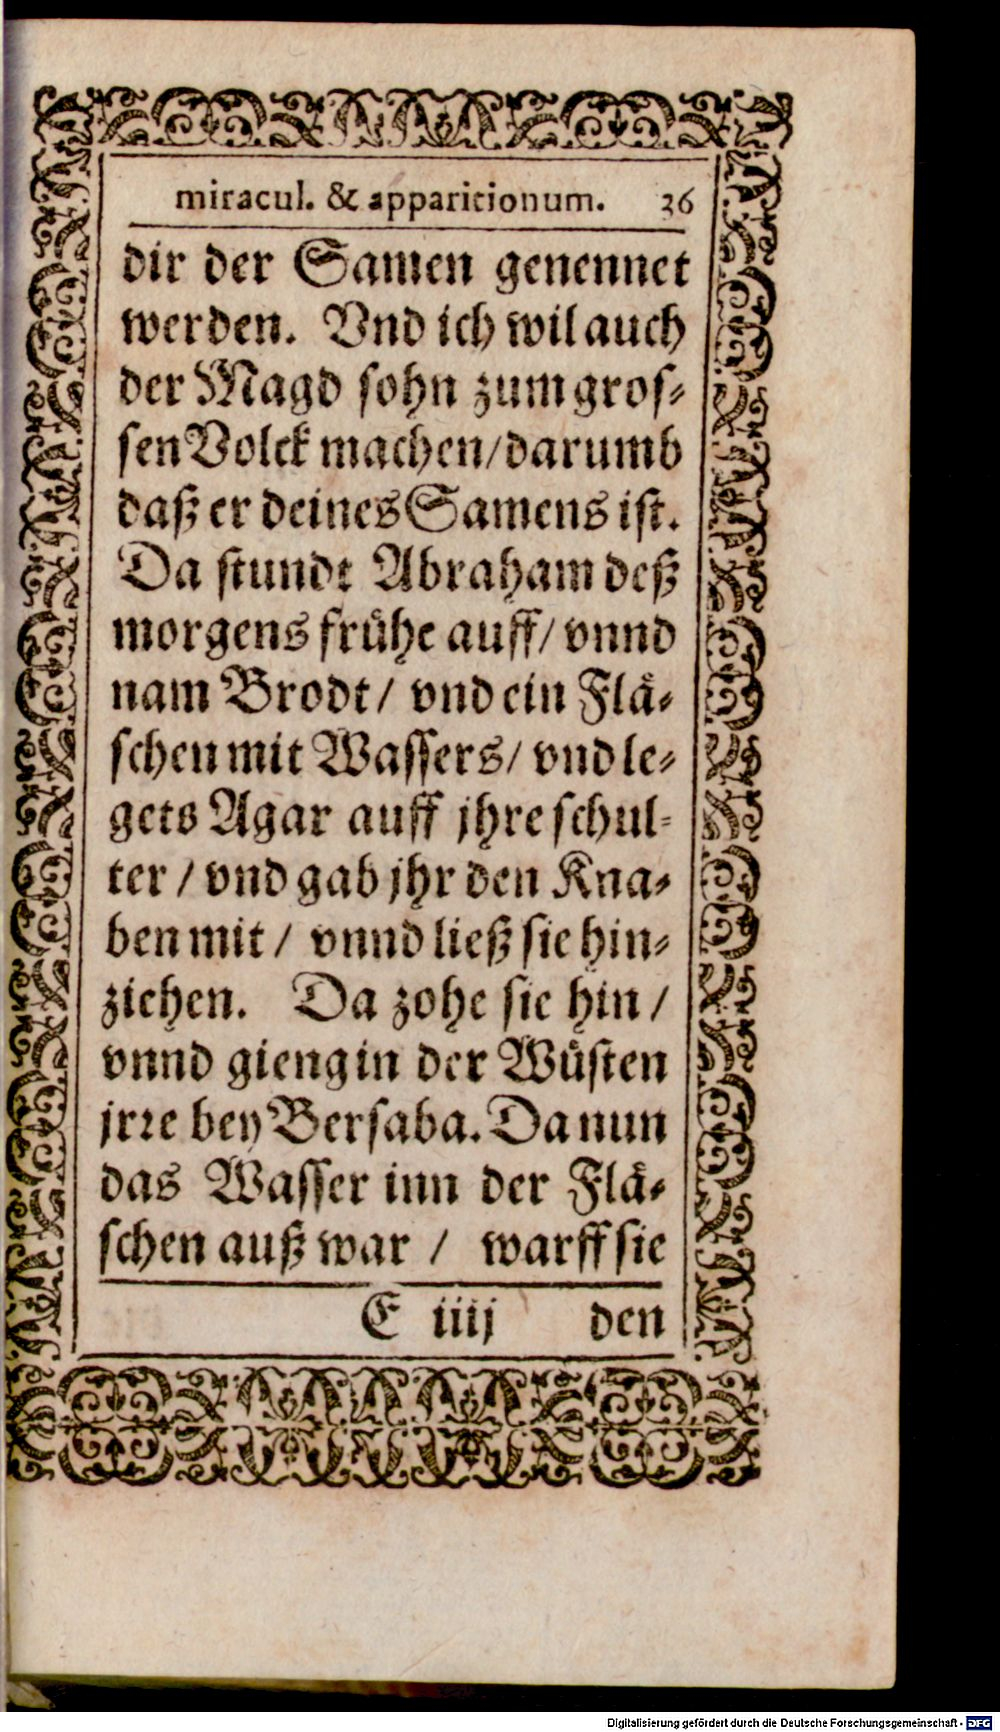 miracul. & apparitionum. 36
dir der Samen genennet
werden. Vnd ich wil auch
der Magd sohn zum gros-
sen Volck machen/darumb
daß er deines Samens ist.
Da stundt Abraham deß
morgens frühe auff/ vnnd
nam Brodt/ vnd ein Flä-
schen mit Wassers/ vnd le-
gets Agar auff jhre schul-
ter / vnd gab jhr den Kna-
ben mit / vnnd ließ sie hin-
ziehen. Da zohe sie hin /
vnnd gieng in der Wüsten
jrre bey Bersaba. Da nun
das Wasser inn der Flä-
schen auß war / warff sie
E iiij den
Digitalisierung gefördert durch die Deutsche Forschungsgemeinschaft - DFG